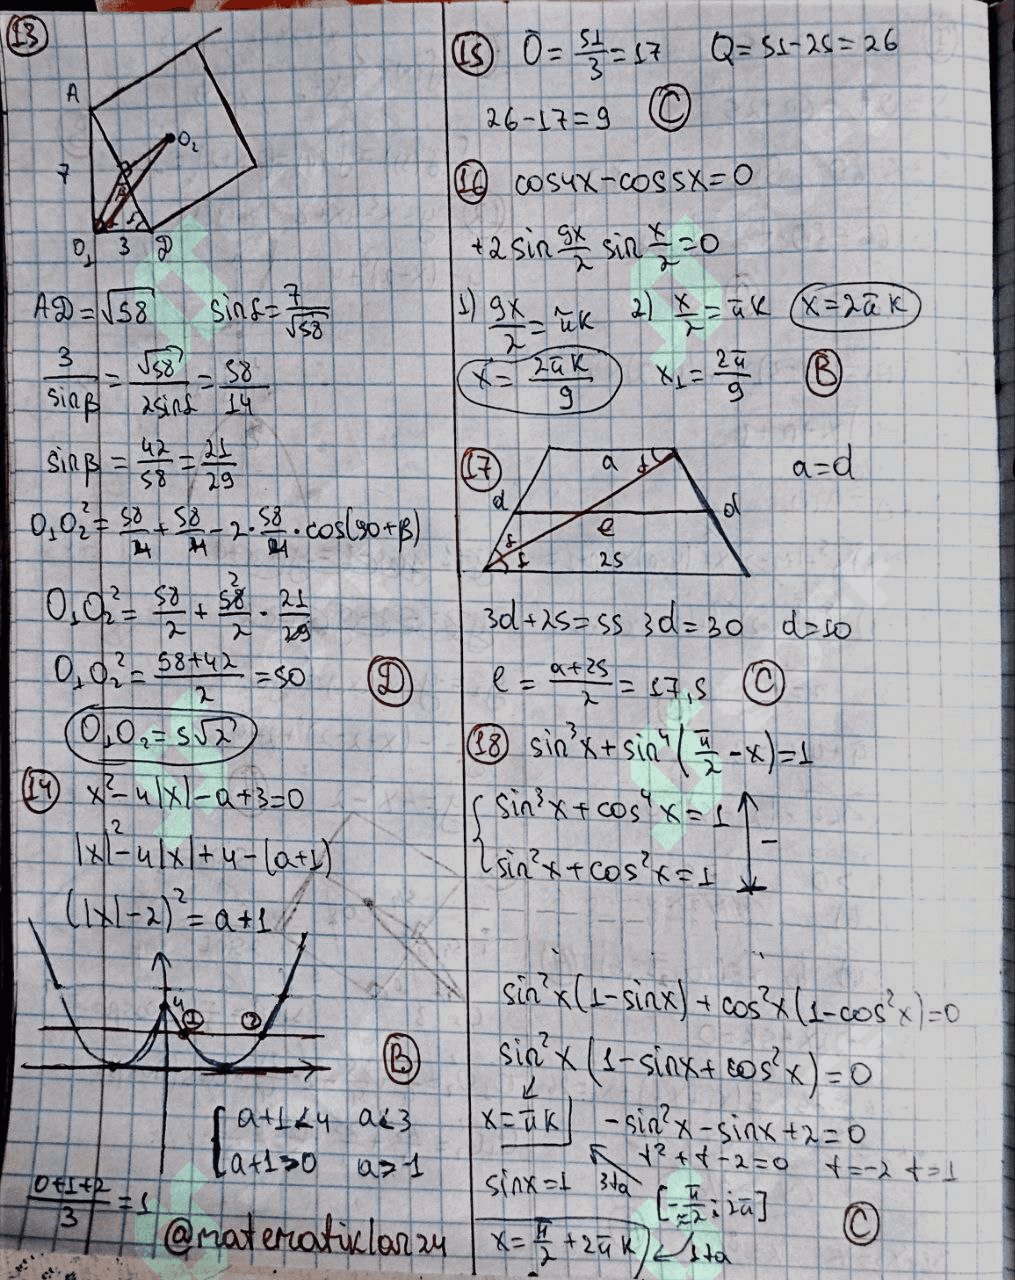 13
A
O₂
7
β
O₁ 3 D
AD=√58 sinα=7/√58
3/sinβ=√58/2sinα=58/14
sinβ=42/58=21/29
O₁O₂²=58/4+58/4-2·58/4·cos(90+β)
O₁O₂²=58/2+58/2·21/29
O₁O₂²=(58+42)/2=50 D
O₁O₂=5√2
14 x²-4|x|-a+3=0
|x|²-4|x|+4-(a+1)
(|x|-2)²=a+1
4 1 2
B
{a+1<4 a<3
a+1>0 a>-1
(0+1+2)/3=1
@matematiklar24
15 O=51/3=17 Q=51-25=26
26-17=9 C
16 cos4x-cos5x=0
+2sin 9x/2 sin x/2=0
1) 9x/2=πk 2) x/2=πk x=2πk
x=2πk/9 x₁=2π/9 B
17 a α a=d
d e d
α α 25
3d+25=55 3d=30 d=10
e=(a+25)/2=17,5 C
18 sin³x+sin⁴(π/2-x)=1
{sin³x+cos⁴x=1
sin²x+cos²x=1 -
sin²x(1-sinx)+cos²x(1-cos²x)=0
sin²x(1-sinx+cos²x)=0
x=πk -sin²x-sinx+2=0
t²+t-2=0 t=-2 t=1
sinx=1 3ta [-π/2;2π]
x=π/2+2πk 1ta C